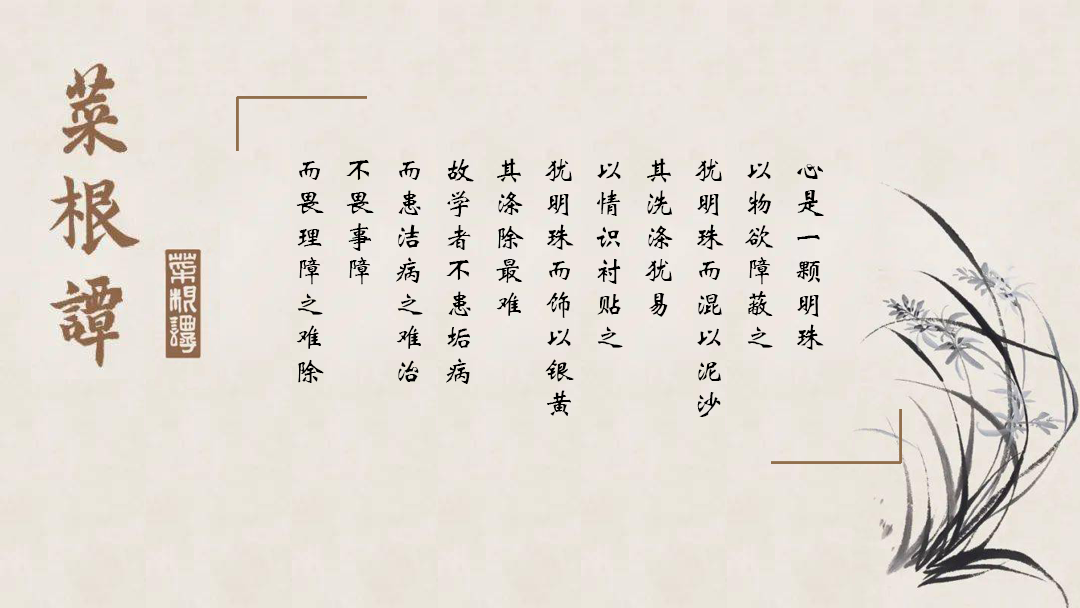 心是一颗明珠
以物欲障蔽之
犹明珠而混以泥沙
其洗涤犹易
以情识衬贴之
犹明珠而饰以银黄
其涤除最难
故学者不患垢病
而患洁病之难治
不畏事障
而畏理障之难除
菜根譚
菜根譚